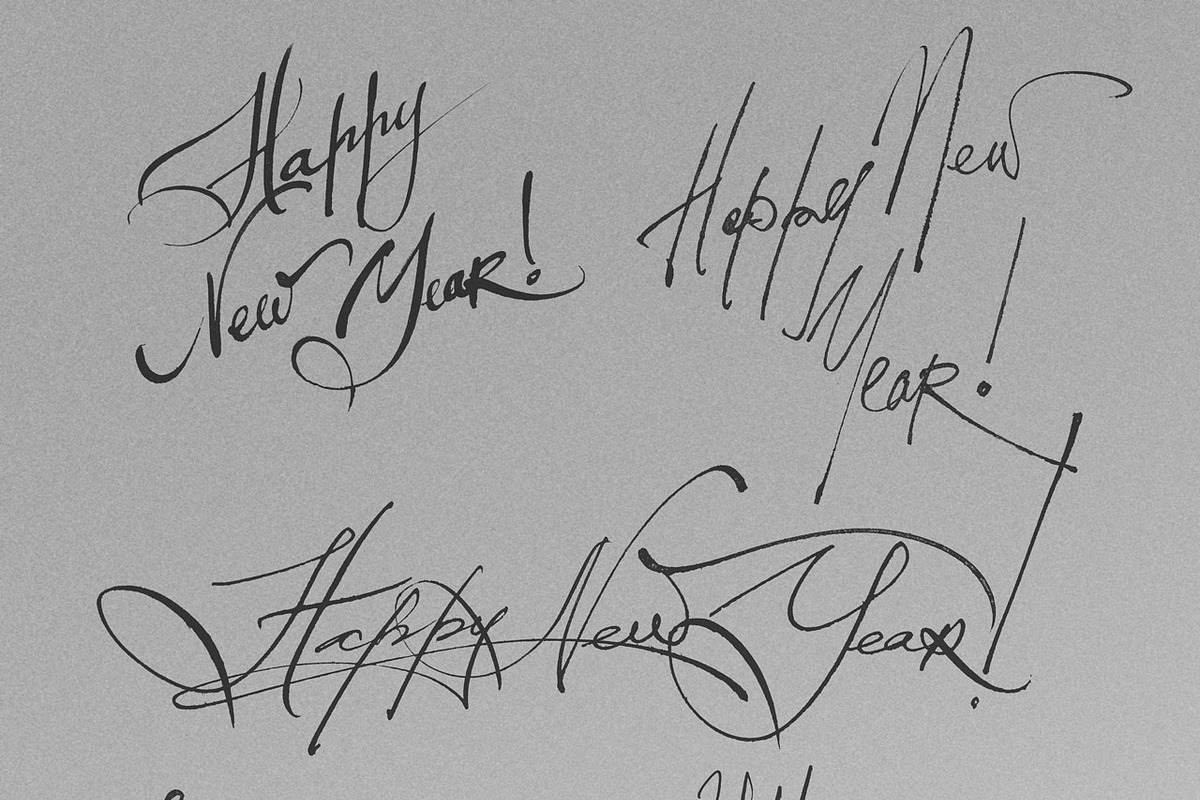 Happy
New Year!
Happy New
Year!
Happy New Year!